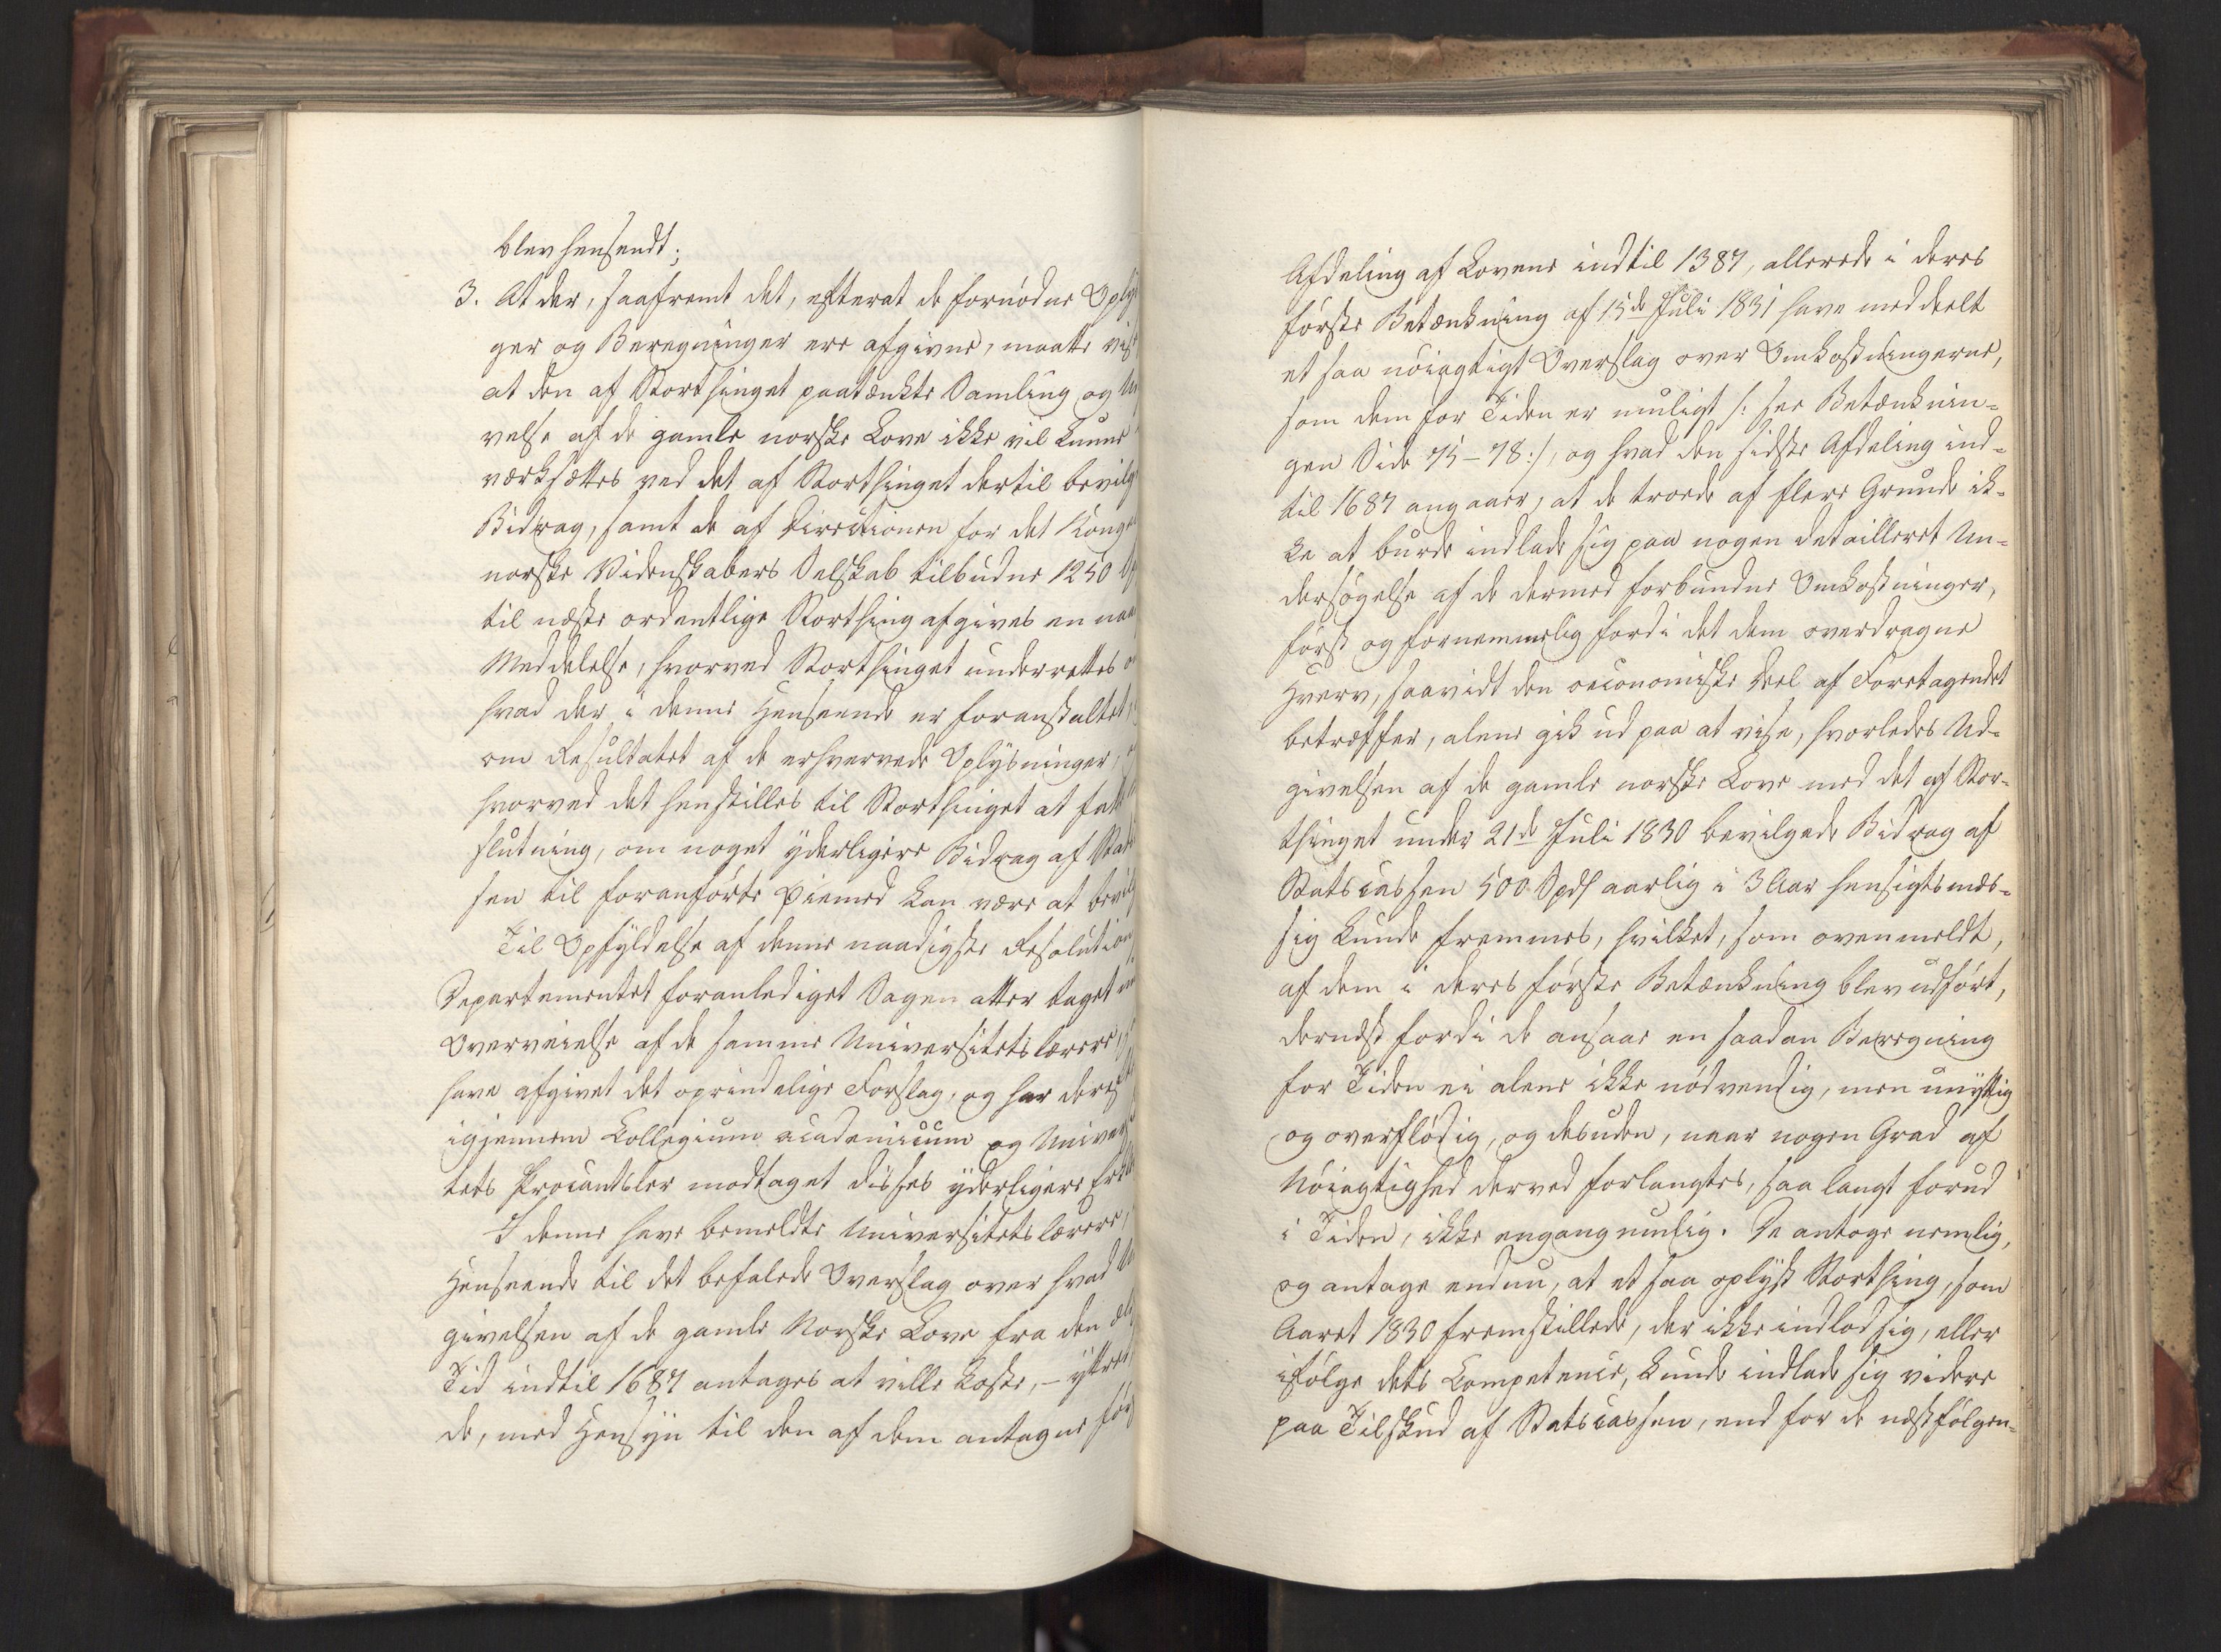 blev hensendt;
3. At der, saafremt det, efterat de fornødne Oplys
ger og Beregninger ere afgivne, maatte vise
at den af Storthinget paatænkte Samling og U
velse af de gamle norske Love ikke vil kunne
værksættes ved det af Storthinget dertil bevilg
Bidrag, samt de af Directionen for det Konge
norske Videnskabers Selskab tilbudne 1250
til næste ordentlige Storthing afgives en naa
Meddelelse, hvorved Storthinget underrettes o
hvad der i denne Henseende er foranstaltet,
om Resultatet af de erhvervede Oplysninger,
hvorved det henstilles til Storthinget at fatte
slutning, om noget yderligere Bidrag af Stats
sen til foranførte Øiemed kan være at bevilg
Til Opfyldelse af denne naadigste Resolution
Departementet foranlediget Sagen atter taget
Overveielse af de samme Universitetslærere,
have afgivet det oprindelige Forslag, og har deres
igjennem Collegium academicum og Univer
tets Procantsler modtaget disses yderligere Erkl
I denne have bemeldte Universitetslærere,
Henseende til det befalede Overslag over hvad
givelsen af de gamle Norske Love fra den æl
Tid indtil 1687 antages at ville koste, – yttret,
de, med Hensyn til den af dem antagne før
Afdeling af Lovene indtil 1387, allerede i deres
første Betænkning af 15de Juli 1831 have meddeelt
et saa nøiagtigt Overslag over Omkostningerne,
som dem for Tiden er muligt /: see Betænknin-
gen Side 75–78:/, og hvad den sidste Afdeling ind-
til 1687 angaaer, at de troede af flere Grunde ik-
ke at burde indlade sig paa nogen detailleret Un-
dersøgelse af de dermed forbundne Omkostninger,
først og fornemmelig fordi det dem overdragne
Hverv, saavidt den oeconomiske Deel af Foretagendet
betræffer, alene gik ud paa at vise, hvorledes Ud-
givelsen af de gamle norske Love med det af Stor-
thinget under 21de Juli 1830 bevilgede Bidrag af
Statscassen 500 Spd aarlig i 3 Aar hensigtsmæs-
sig kunde fremmes, hvilket, som ovenmeldt,
af dem i deres første Betænkning blev udført,
dernæst fordi de ansaae en saadan Beregning
for Tiden ei alene ikke nødvendig, men unyttig
og overflødig, og desuden, naar nogen Grad af
Nøiagtighed derved forlangtes, saa langt forud
i Tiden, ikke engang mulig. De antoge nemlig,
og antage endnu, at et saa oplyst Storthing, som
Aaret 1830 fremstillede, der ikke indlod sig, eller
ifølge dets Competence, kunde indlade sig videre
paa Tilskud af Statscassen, end for de næstfølgen-